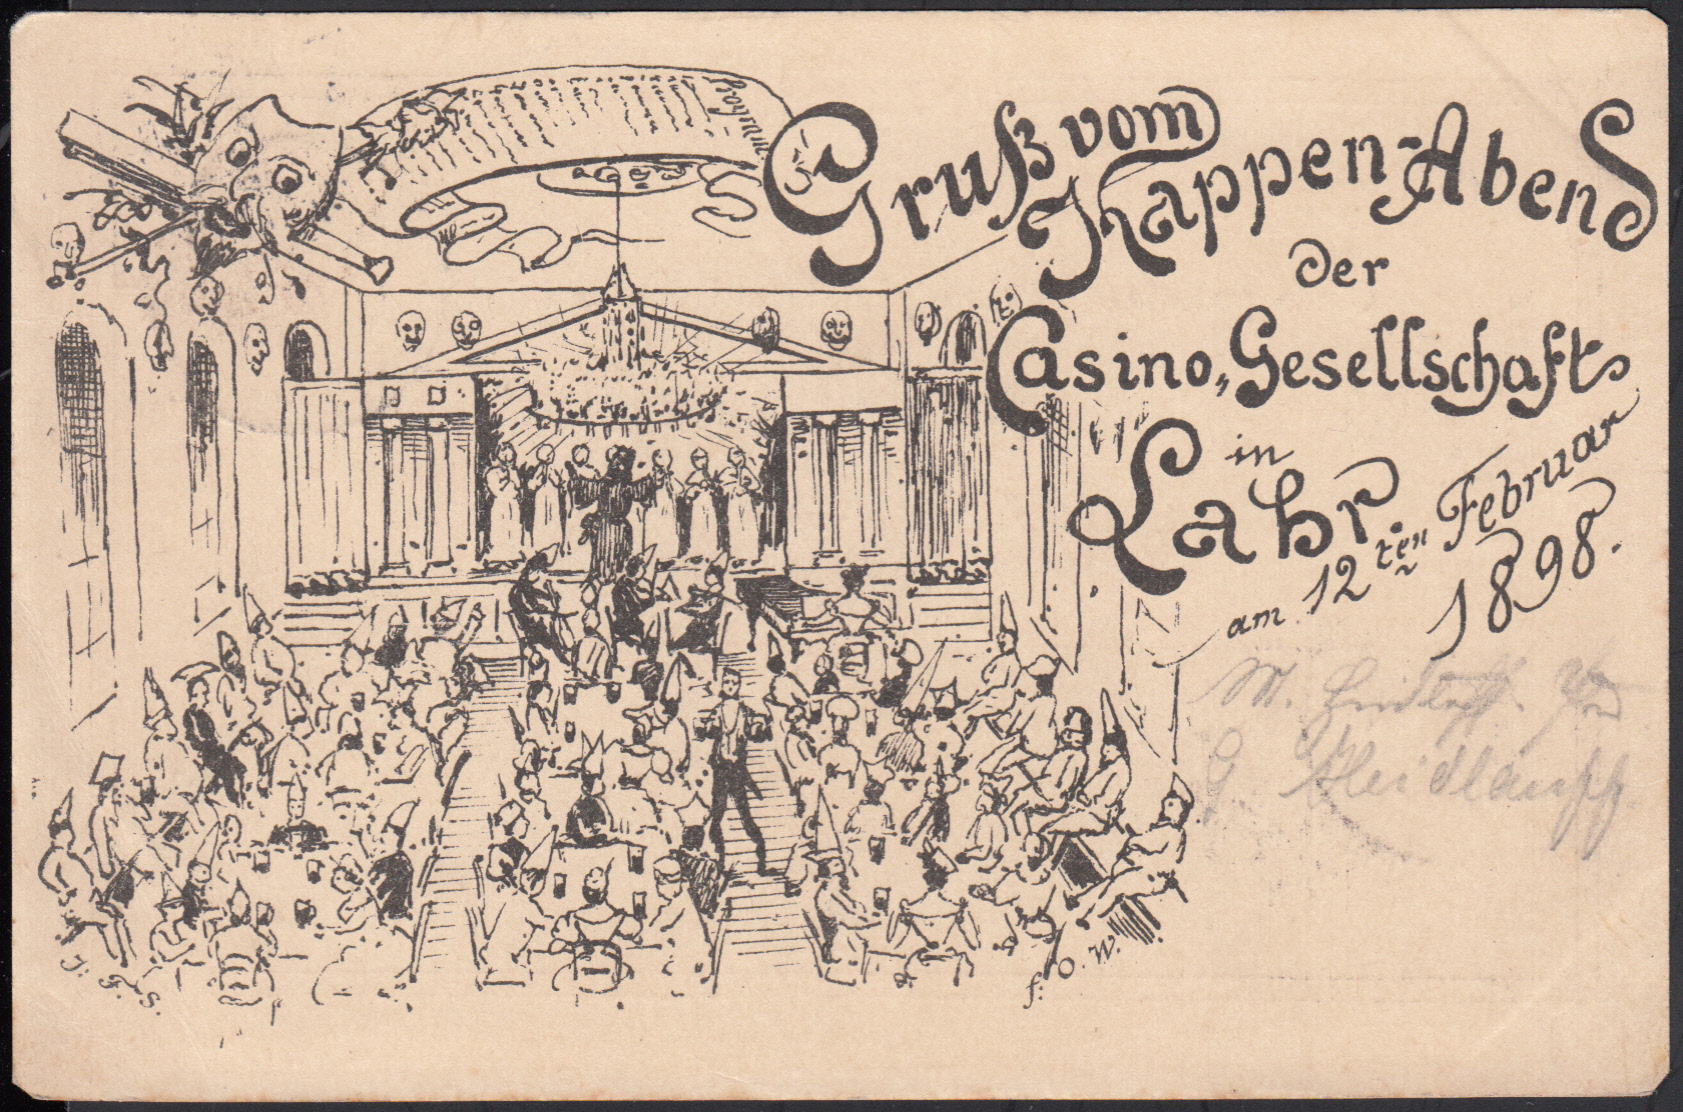 Programm
Gruß vom
Kappen-Abend
der
Casino-Gesellschaft
in
Lahr
am 12ten Februar
1898.
G. Heidlauff
J. F. S.
f: O. W.